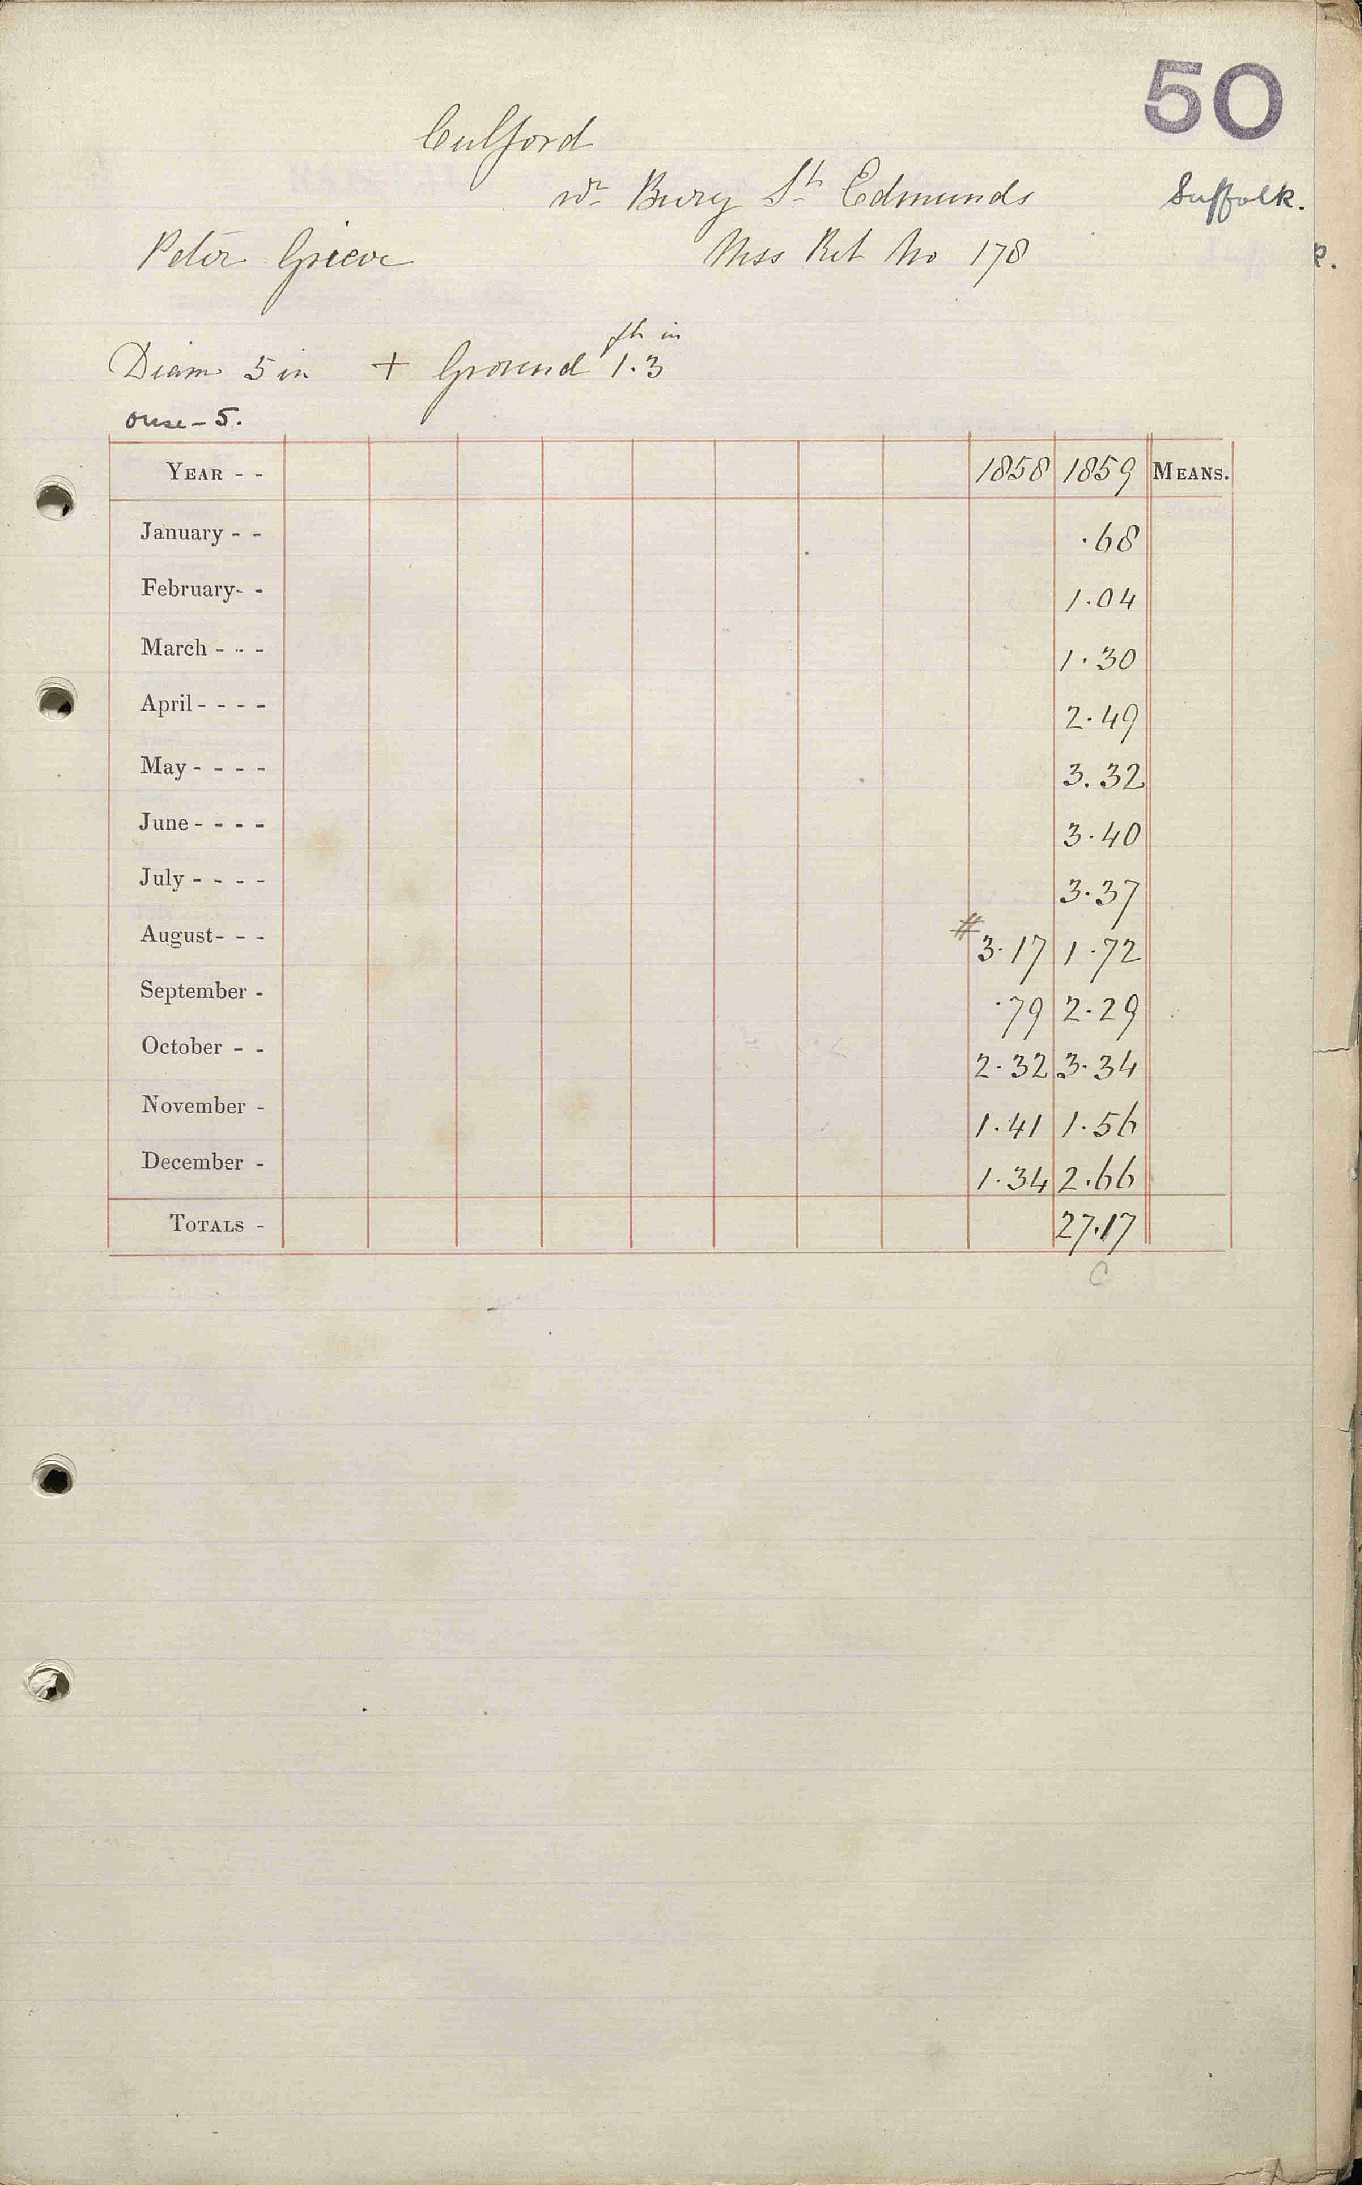 50
Culford
nr Bury St Edmunds
Suffolk.
Peter Grieve
Mss Ret No 178
ft in
Diam 5 in + Ground 1.3
Ouse - 5.
YEAR - - 1858 1859 MEANS.
January - - .68
February- - 1.04
March - - - 1.30
April - - - - 2.49
May - - - - 3.32
June - - - - 3.40
July - - - - 3.37
August- - - # 3.17 1.72
September - .79 2.29
October - - 2.32 3.34
November - 1.41 1.56
December - 1.34 2.66
TOTALS - 27.17
C